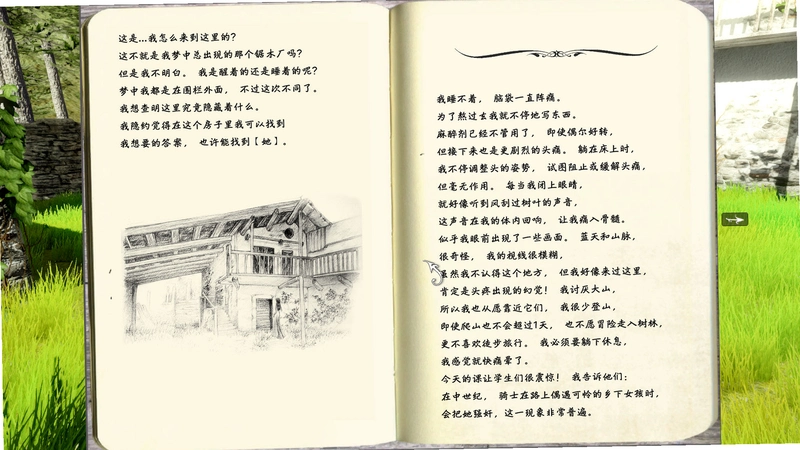 这是...我怎么来到这里的?
这不就是我梦中总出现的那个锯木厂吗?
但是我不明白。 我是醒着的还是睡着的呢?
梦中我都是在围栏外面, 不过这次不同了。
我想查明这里究竟隐藏着什么。
我隐约觉得在这个房子里我可以找到
我想要的答案, 也许能找到【她】。
我睡不着, 脑袋一直阵痛。
为了熬过玄我就不停地写东西。
麻醉剂已经不管用了, 即使偶尔好转,
但接下来也是更剧烈的头痛。 躺在床上时,
我不停调整头的姿势, 试图阻止或缓解头痛,
但毫无作用。 每当我闭上眼睛,
就好像听到风刮过树叶的声音,
这声音在我的体内回响, 让我痛入骨髓。
似乎我眼前出现了一些画面。 蓝天和山脉,
很奇怪, 我的视线很模糊,
虽然我不认得这个地方, 但我好像来过这里,
肯定是头疼出现的幻觉! 我讨厌大山,
所以我也从愿靠近它们, 我很少登山,
即使爬山也不会超过1天, 也不愿冒险走入树林,
更不喜欢徒步旅行。 我必须要躺下休息,
我感觉就快痛晕了。
今天的课让学生们很震惊! 我告诉他们:
在中世纪, 骑士在路上偶遇可怜的乡下女孩时,
会把她强奸, 这一现象非常普遍。